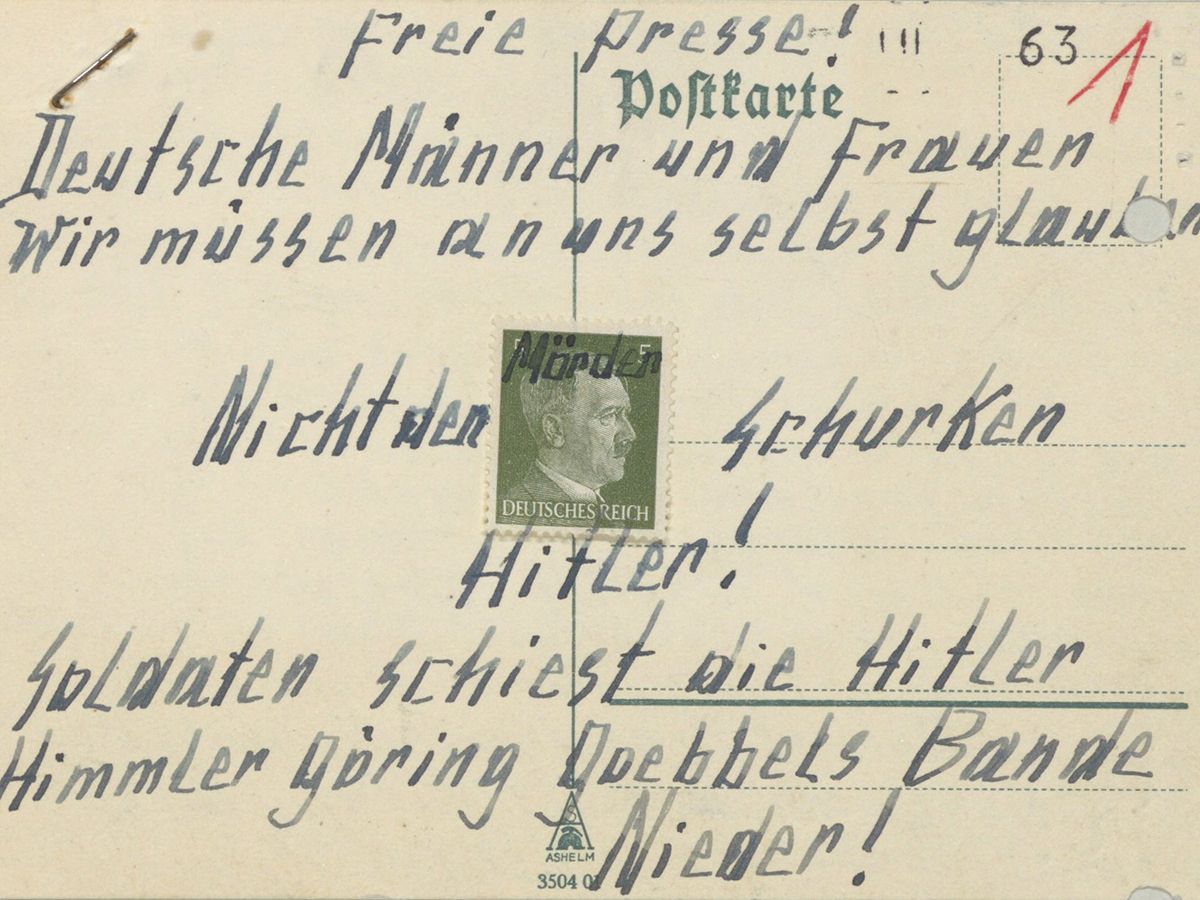 Freie Presse!
63 1
Postkarte
Deutsche Männer und Frauen
Wir müssen an uns selbst glauben
5 Mörder 5
Nicht den Schurken
DEUTSCHES REICH
Hitler!
Soldaten schiest die Hitler
Himmler Göring Goebbels Bande
Nieder!
ASHELM
3504 01